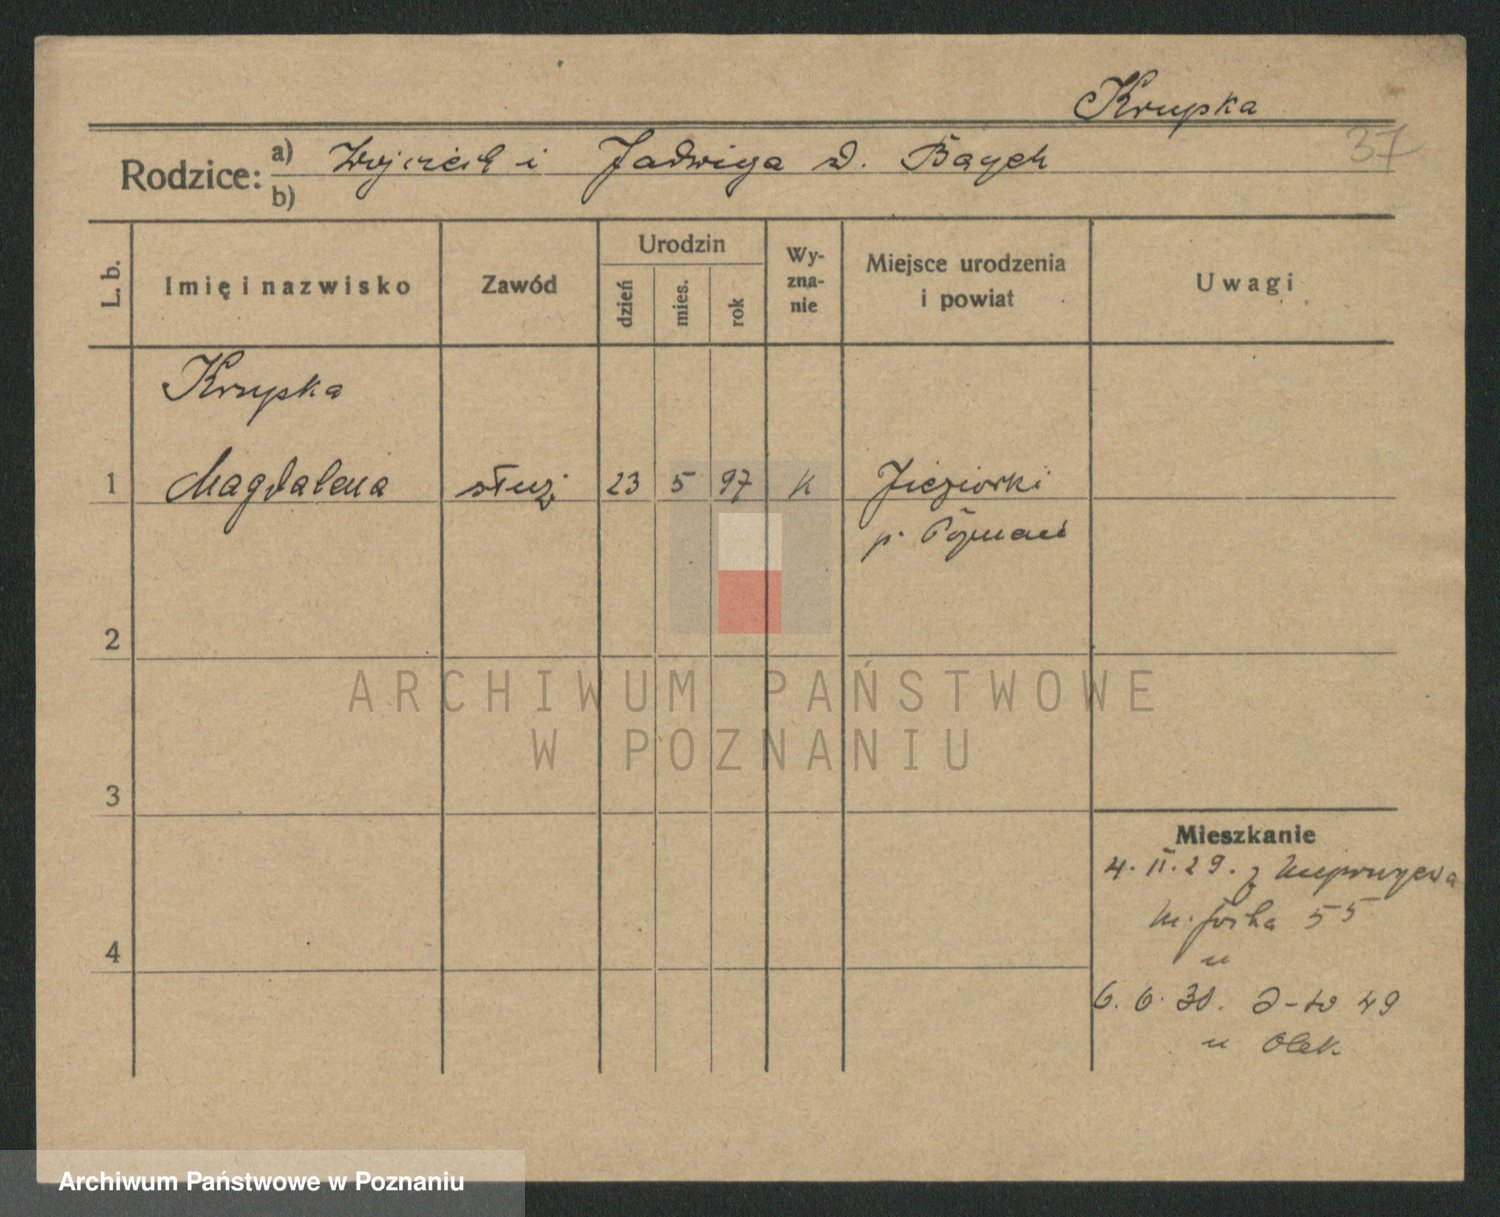 Krupka
37
Rodzice: a) Wojciech i Jadwiga d. Baych
b)
L. b.
Imię i nazwisko
Zawód
Urodzin
dzień
mies.
rok
Wy-
zna-
nie
Miejsce urodzenia
i powiat
Uwagi
Krupka
1 Magdalena służ. 23 5 97 k Jeziorki
p. Poznań
2
ARCHIWUM PAŃSTWOWE
W POZNANIU
3
Mieszkanie
4. II. 29. z
55
4
u
6. 6. 30. 49
u Olek
Archiwum Państwowe w Poznaniu